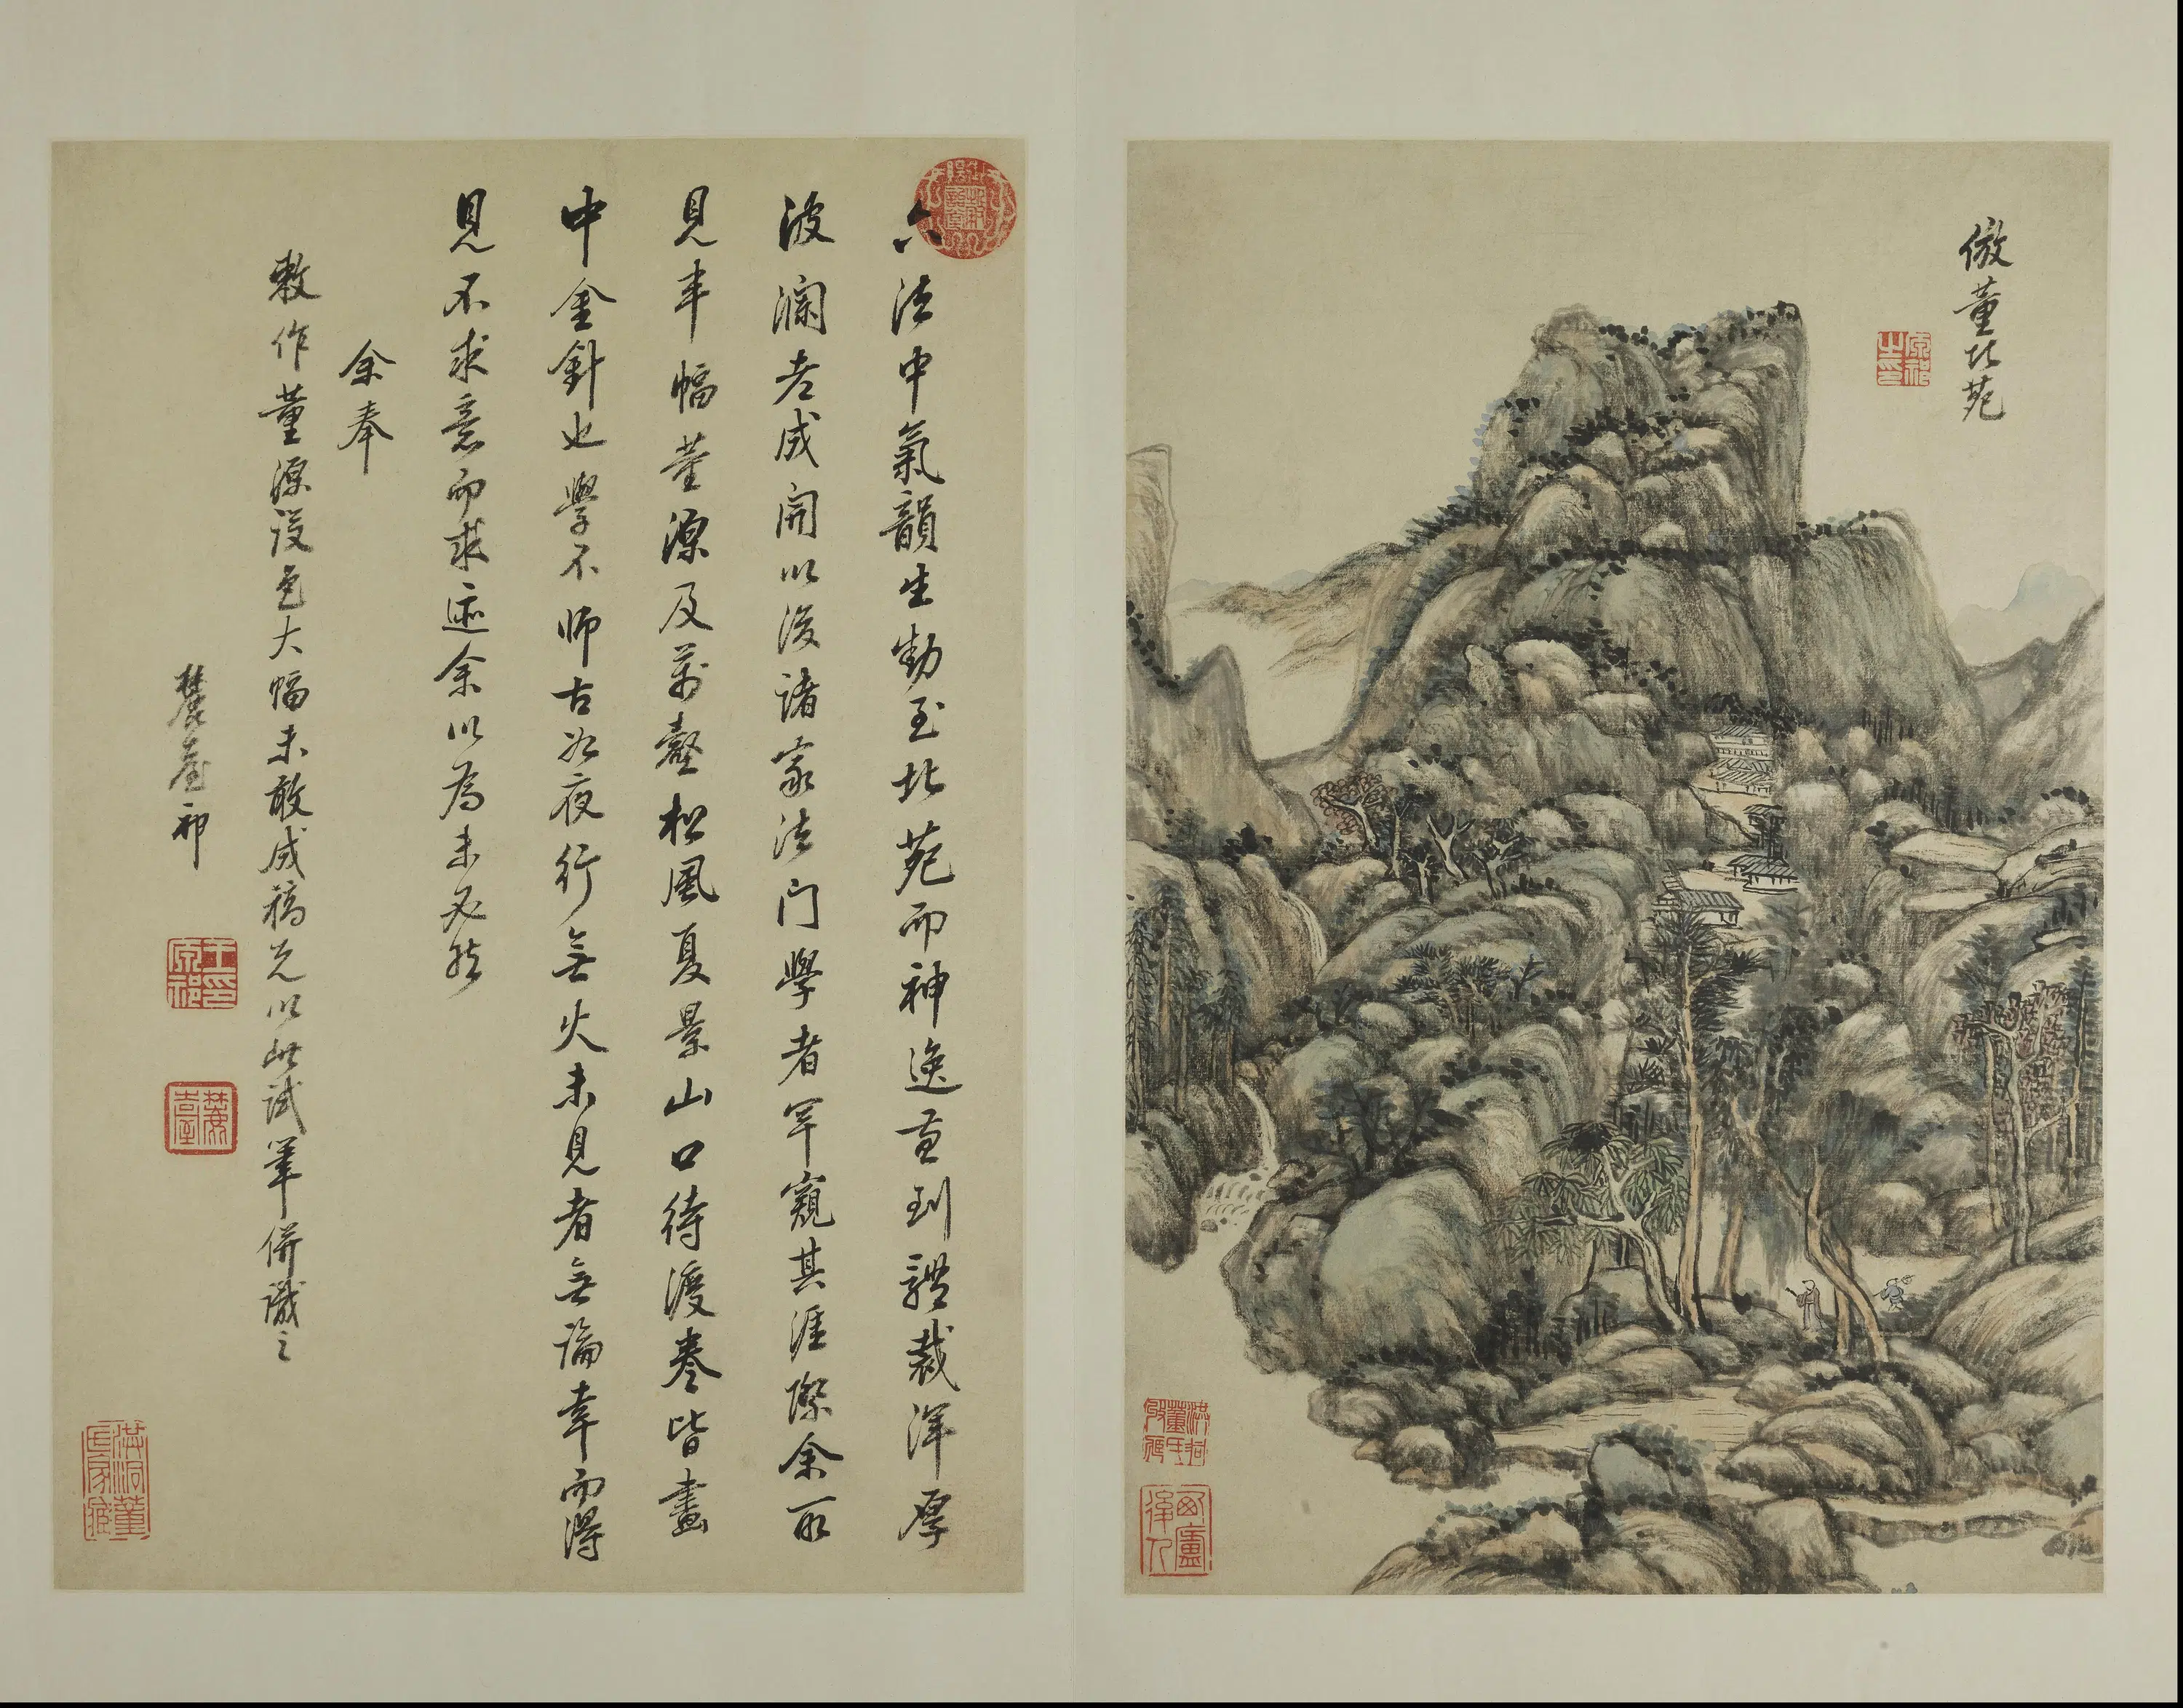 倣董北苑
原祁之印
西廬後人
六法中氣韻生動至北苑而神逸兼到體裁渾厚
波瀾老成開以後諸家法門學者罕窺其涯際余所
見半幅董源及萬壑松風夏景山口待渡卷皆畫
中金針也學不師古如夜行無火未見者無論幸而得
見不求意而求迹余以為未必然
余奉
敕作董源設色大幅未敢成稿先以此試筆併識之
麓臺祁
王原祁印
麓臺